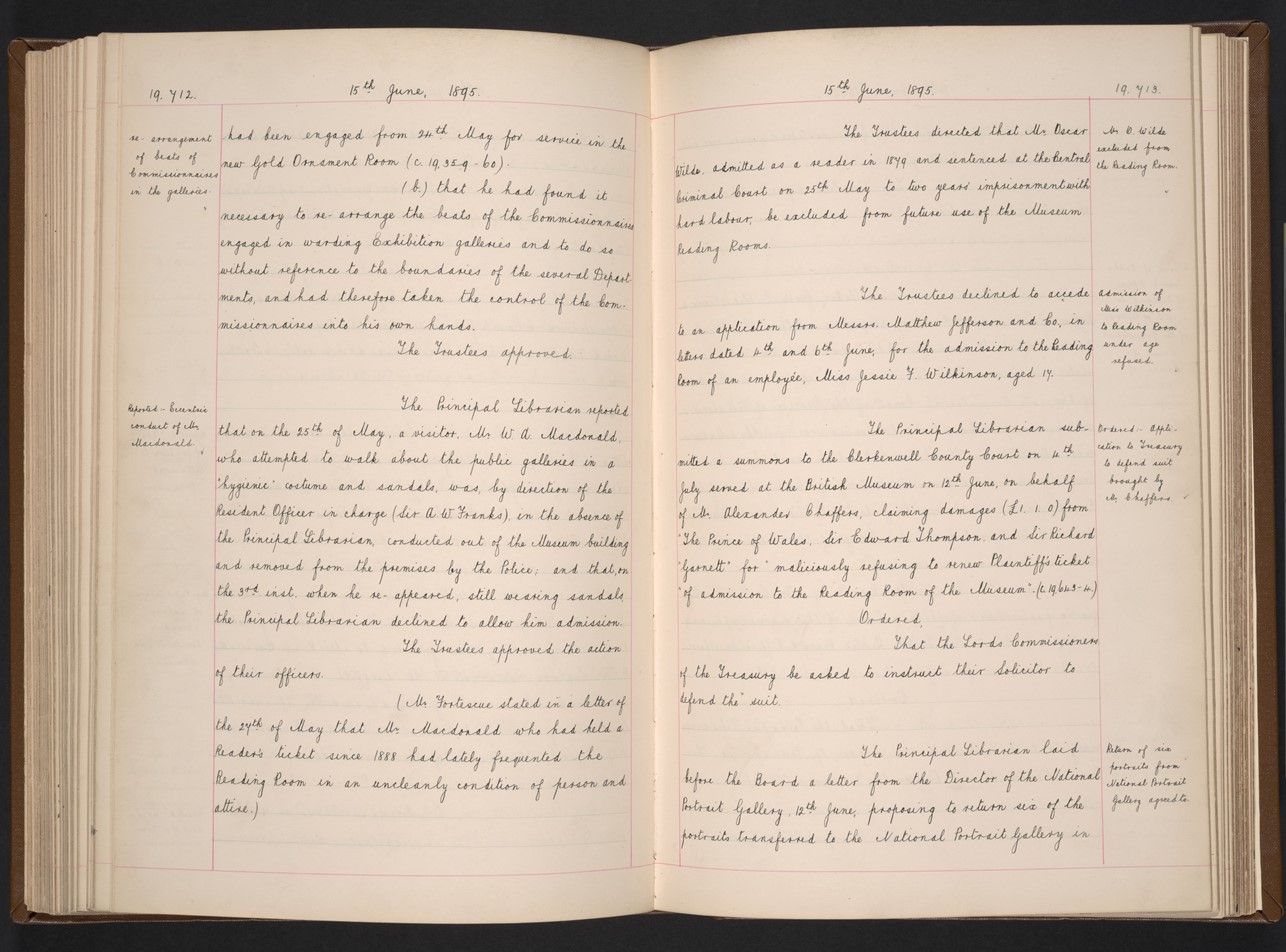 19.712.
15th June, 1895.
re-arrangement
of beats of
Commissionnaires
in the galleries.
had been engaged from 24th May for service in the
new Gold Ornament Room (c. 19,359-60).
(b.) that he had found it
necessary to re-arrange the beats of the Commissionnaires
engaged in warding Exhibition galleries and to do so
without reference to the boundaries of the several Depart-
ments, and had therefore taken the control of the Com-
missionnaires into his own hands.
The Trustees approved.
Reported - Eccentric
conduct of Mr.
Macdonald.
The Principal Librarian reported
that on the 25th of May, a visitor, Mr. W. A. Macdonald,
who attempted to walk about the public galleries in a
"hygienic" costume and sandals, was, by direction of the
Resident Officer in charge (Sir A. W. Franks), in the absence of
the Principal Librarian, conducted out of the Museum building
and removed from the premises by the Police; and that, on
the 3rd inst. when he re-appeared, still wearing sandals,
the Principal Librarian declined to allow him admission.
The Trustees approved the action
of their officers.
(Mr. Fortescue stated in a letter of
the 27th of May that Mr. Macdonald who had held a
Reader's ticket since 1888 had lately frequented the
Reading Room in an uncleanly condition of person and
attire.)
15th June, 1895.
19.713.
The Trustees directed that Mr. Oscar
Wilde, admitted as a reader in 1879 and sentenced at the Central
Criminal Court on 25th May to two years' imprisonment with
hard labour, be excluded from future use of the Museum
Reading Rooms.
Mr. O. Wilde
excluded from
the Reading Room.
The Trustees declined to accede
to an application from Messrs. Matthew Jefferson and Co, in
letters dated 4th and 6th June, for the admission to the Reading
Room of an employée, Miss Jessie F. Wilkinson, aged 17.
Admission of
Miss Wilkinson
to Reading Room
under age
refused.
The Principal Librarian sub-
mitted a summons to the Clerkenwell County Court on 4th
July served at the British Museum on 12th June, on behalf
of Mr. Alexander Chaffers, claiming damages (£1. 1. 0) from
"The Prince of Wales, Sir Edward Thompson and Sir Richard
"Garnett" for "maliciously refusing to renew Plaintiff's ticket
"of admission to the Reading Room of the Museum". (c. 19,643-4.)
Ordered,
That the Lords Commissioners
of the Treasury be asked to instruct their Solicitor to
defend the suit.
Ordered:- appli-
cation to Treasury
to defend suit
brought by
Mr. Chaffers.
The Principal Librarian laid
before the Board a letter from the Director of the National
Portrait Gallery, 12th June, proposing to return six of the
portraits transferred to the National Portrait Gallery in
Return of six
portraits from
National Portrait
Gallery agreed to.